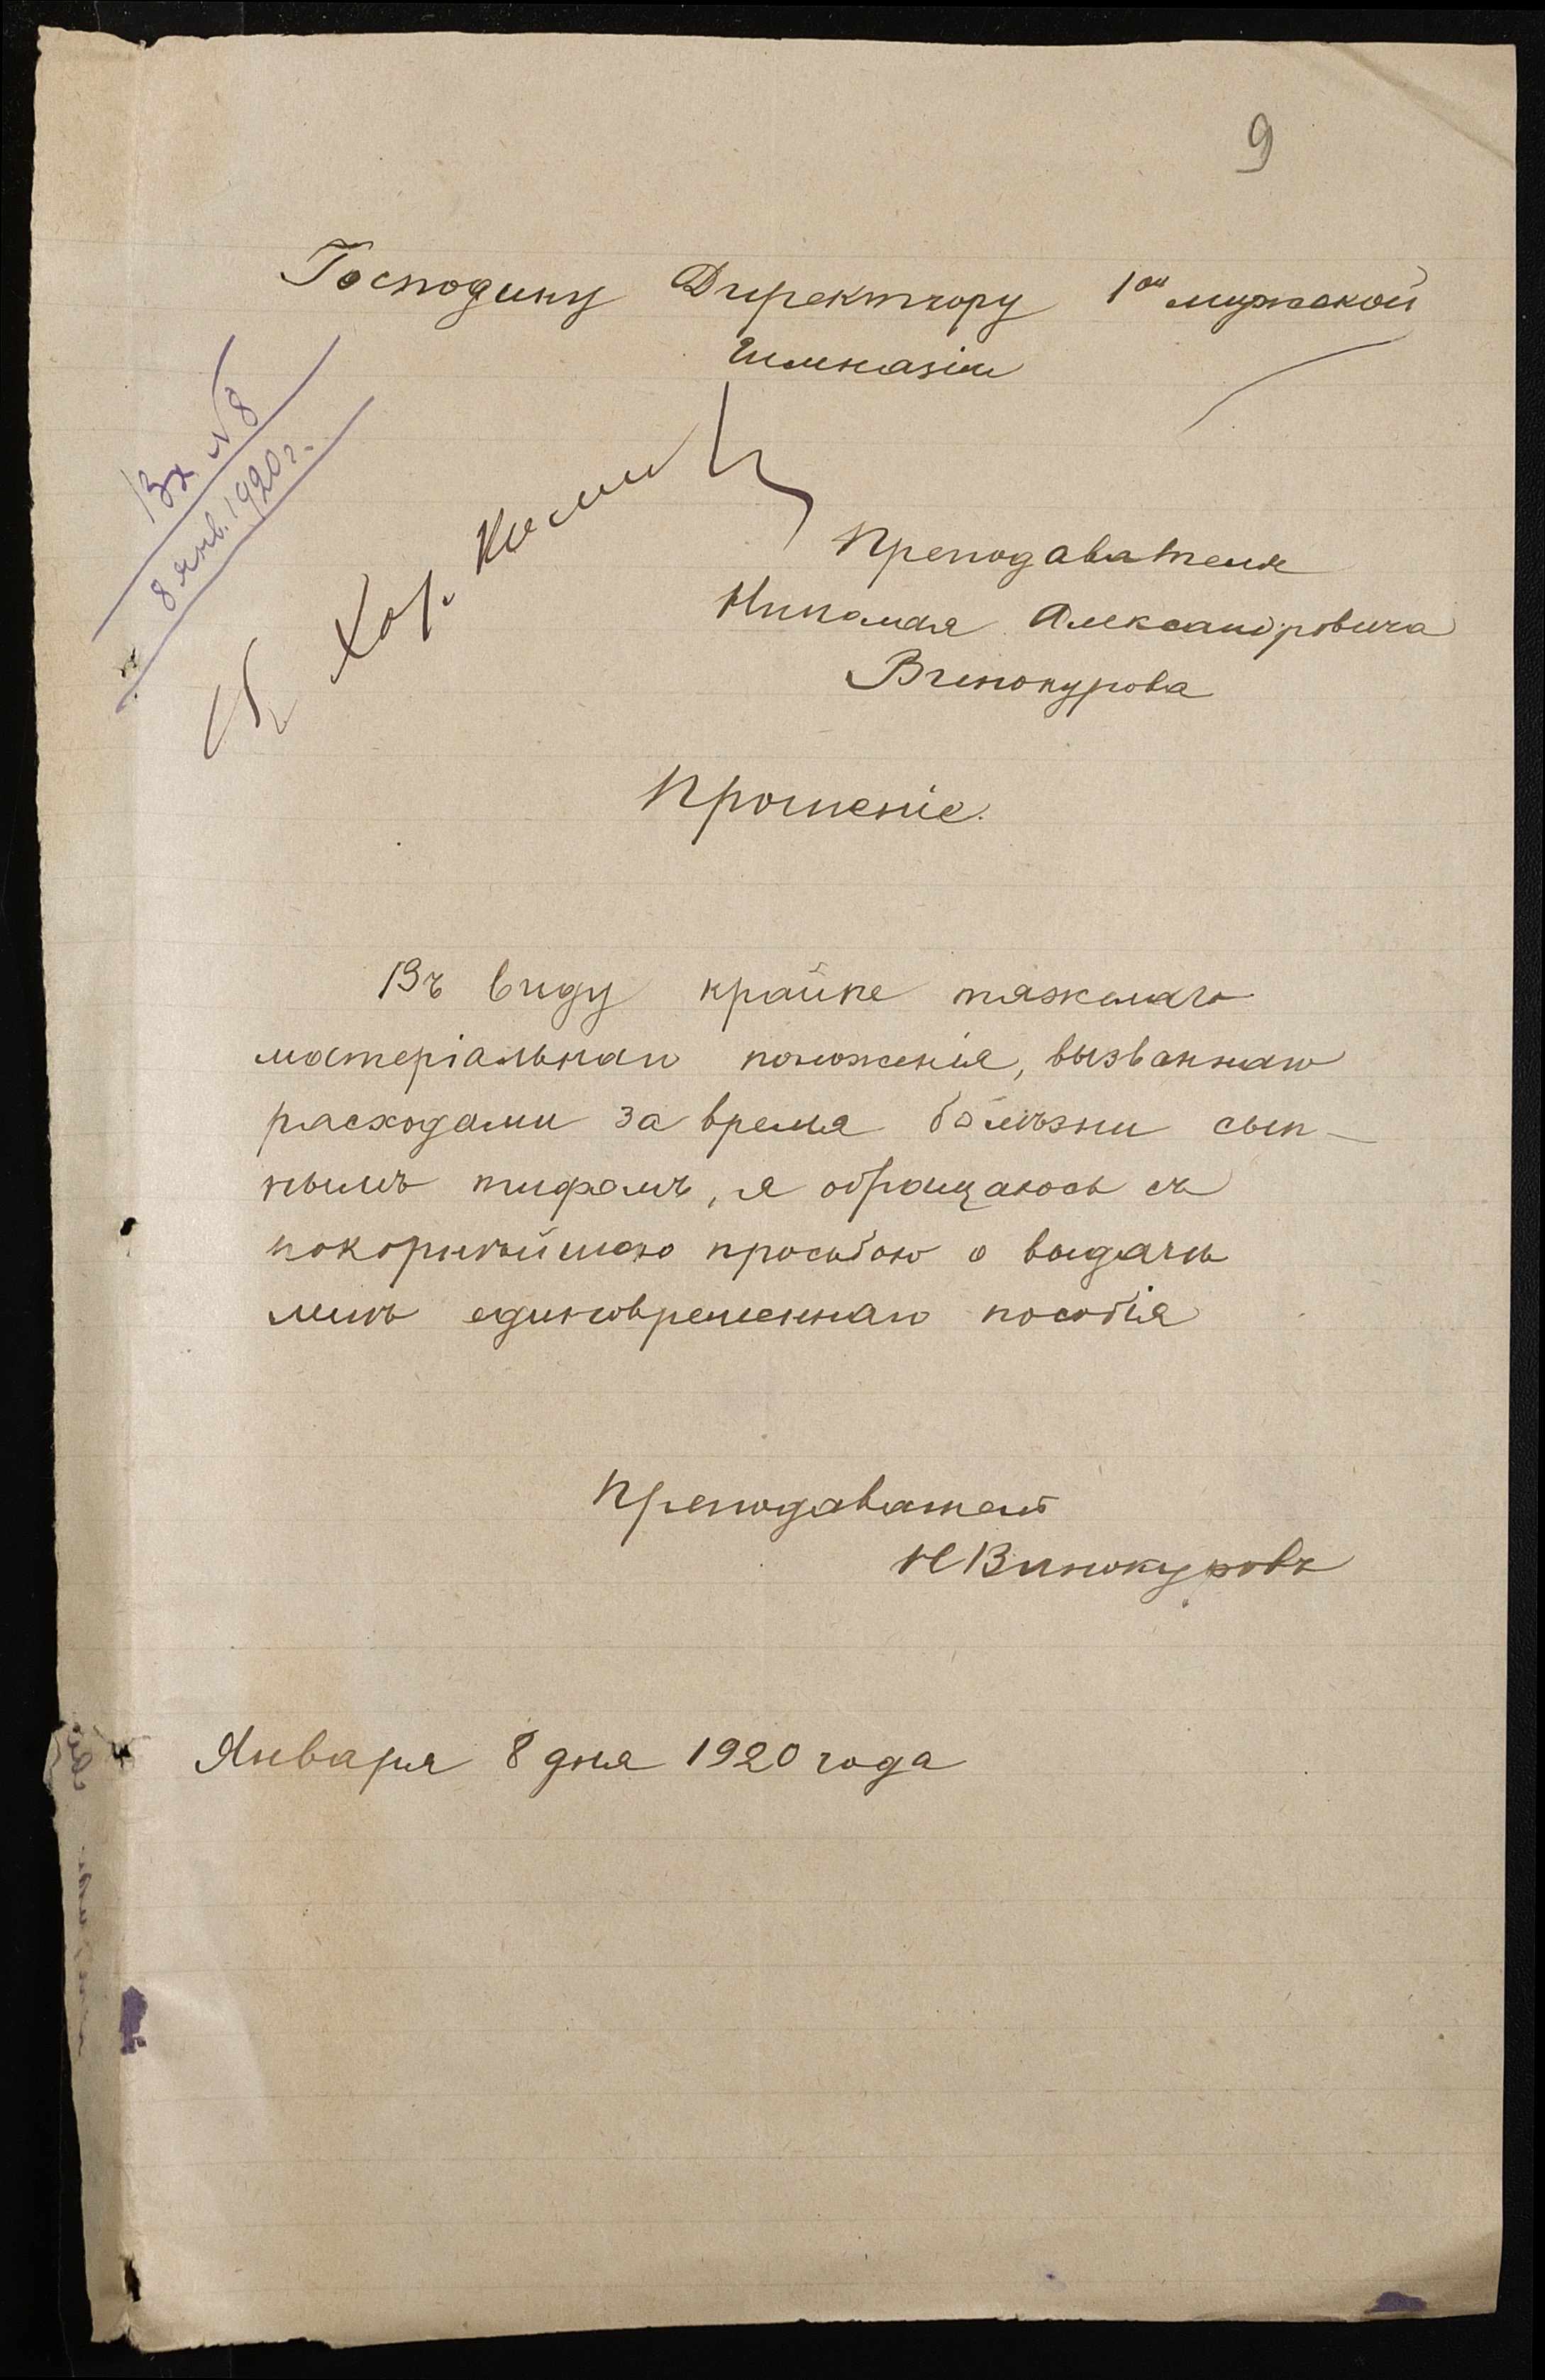 9
Господину Директору 1ой мужской
Гимназiи
Вх. №8
8 янв. 1920 г.
В Хоз. Ком
Преподавателя
Николая Александровича
Винокурова
Прошенiе.
Въ виду крайне тяжелаго
матерiальнаго положенiя, вызваннаго
расходами за время болѣзни сып-
нымъ тифомъ, я обращаюсь съ
покорнѣйшею просьбою о выдачѣ
мнѣ единовременнаго пособiя
Преподаватель
Н Винокуровъ
Января 8 дня 1920 года